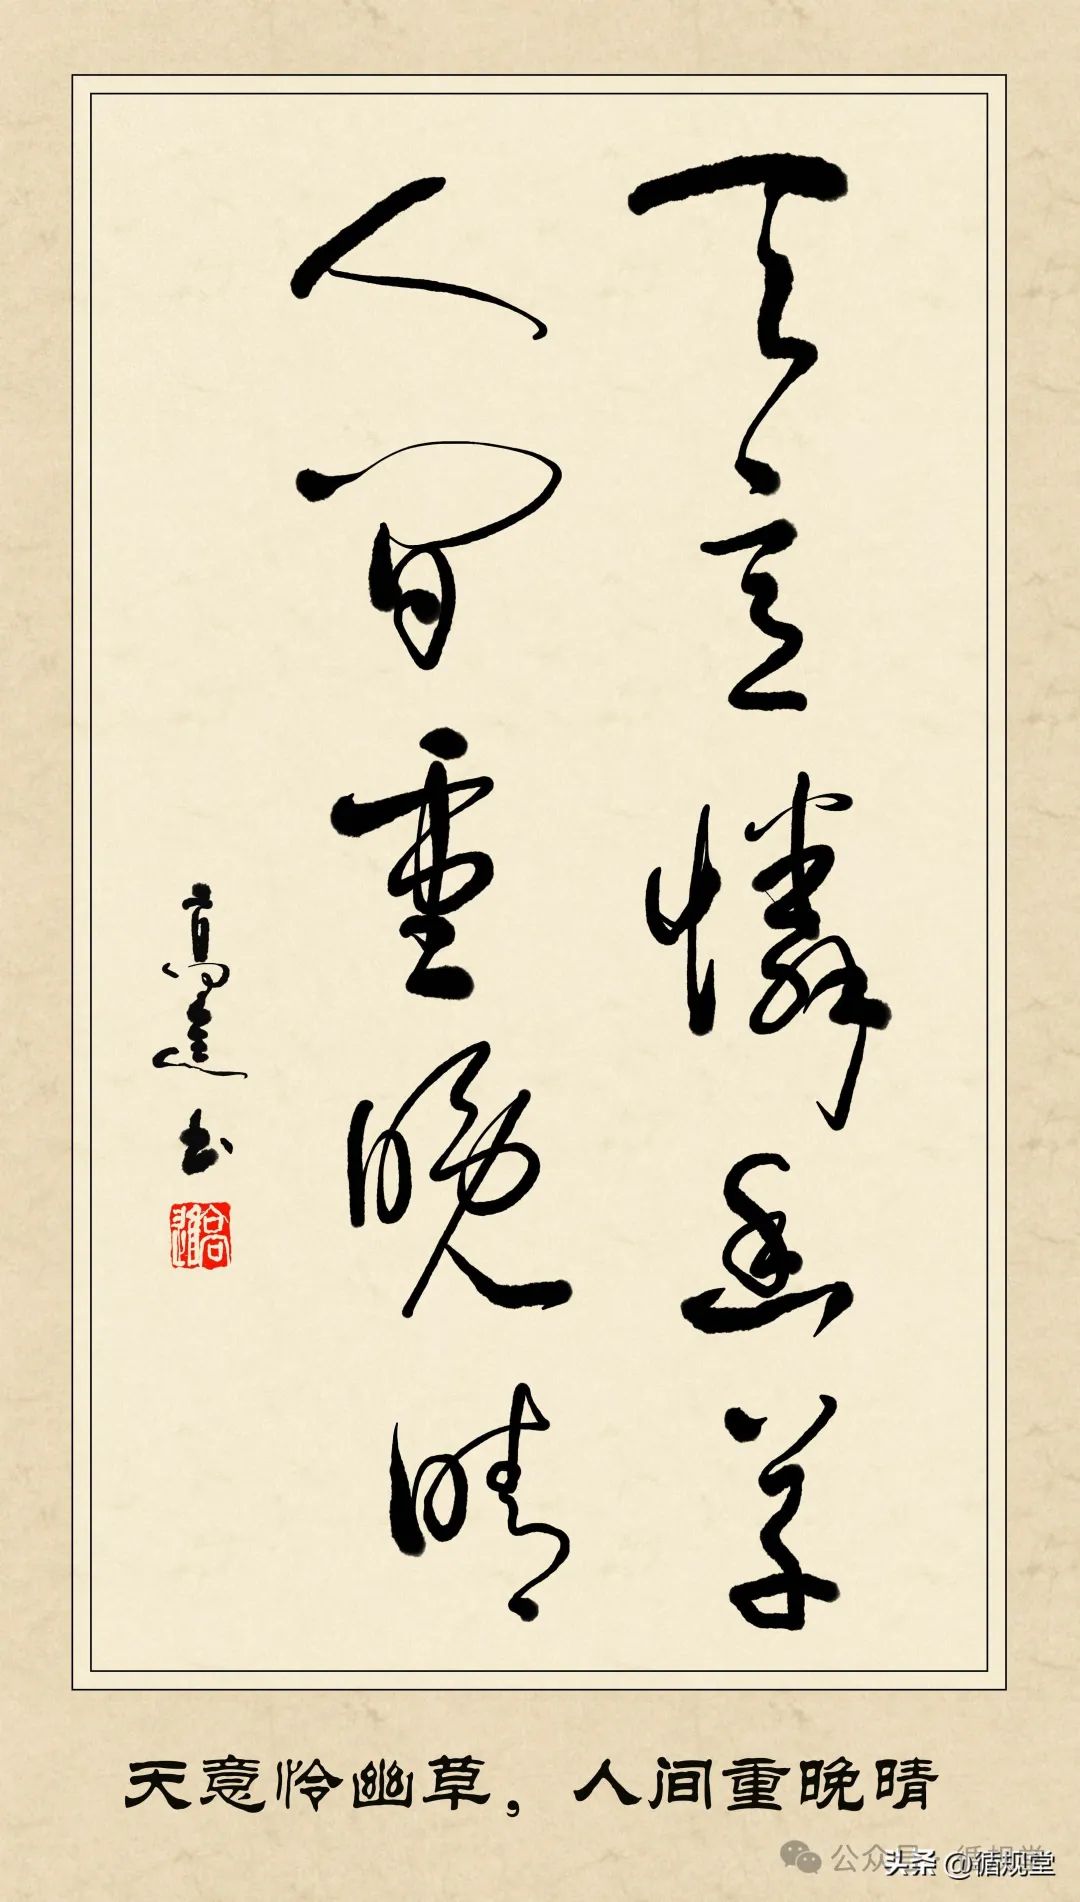 天意憐幽草
人間重晚晴
高進书
高進
天意怜幽草，人间重晚晴
公众号·循规堂
头条 @循规堂